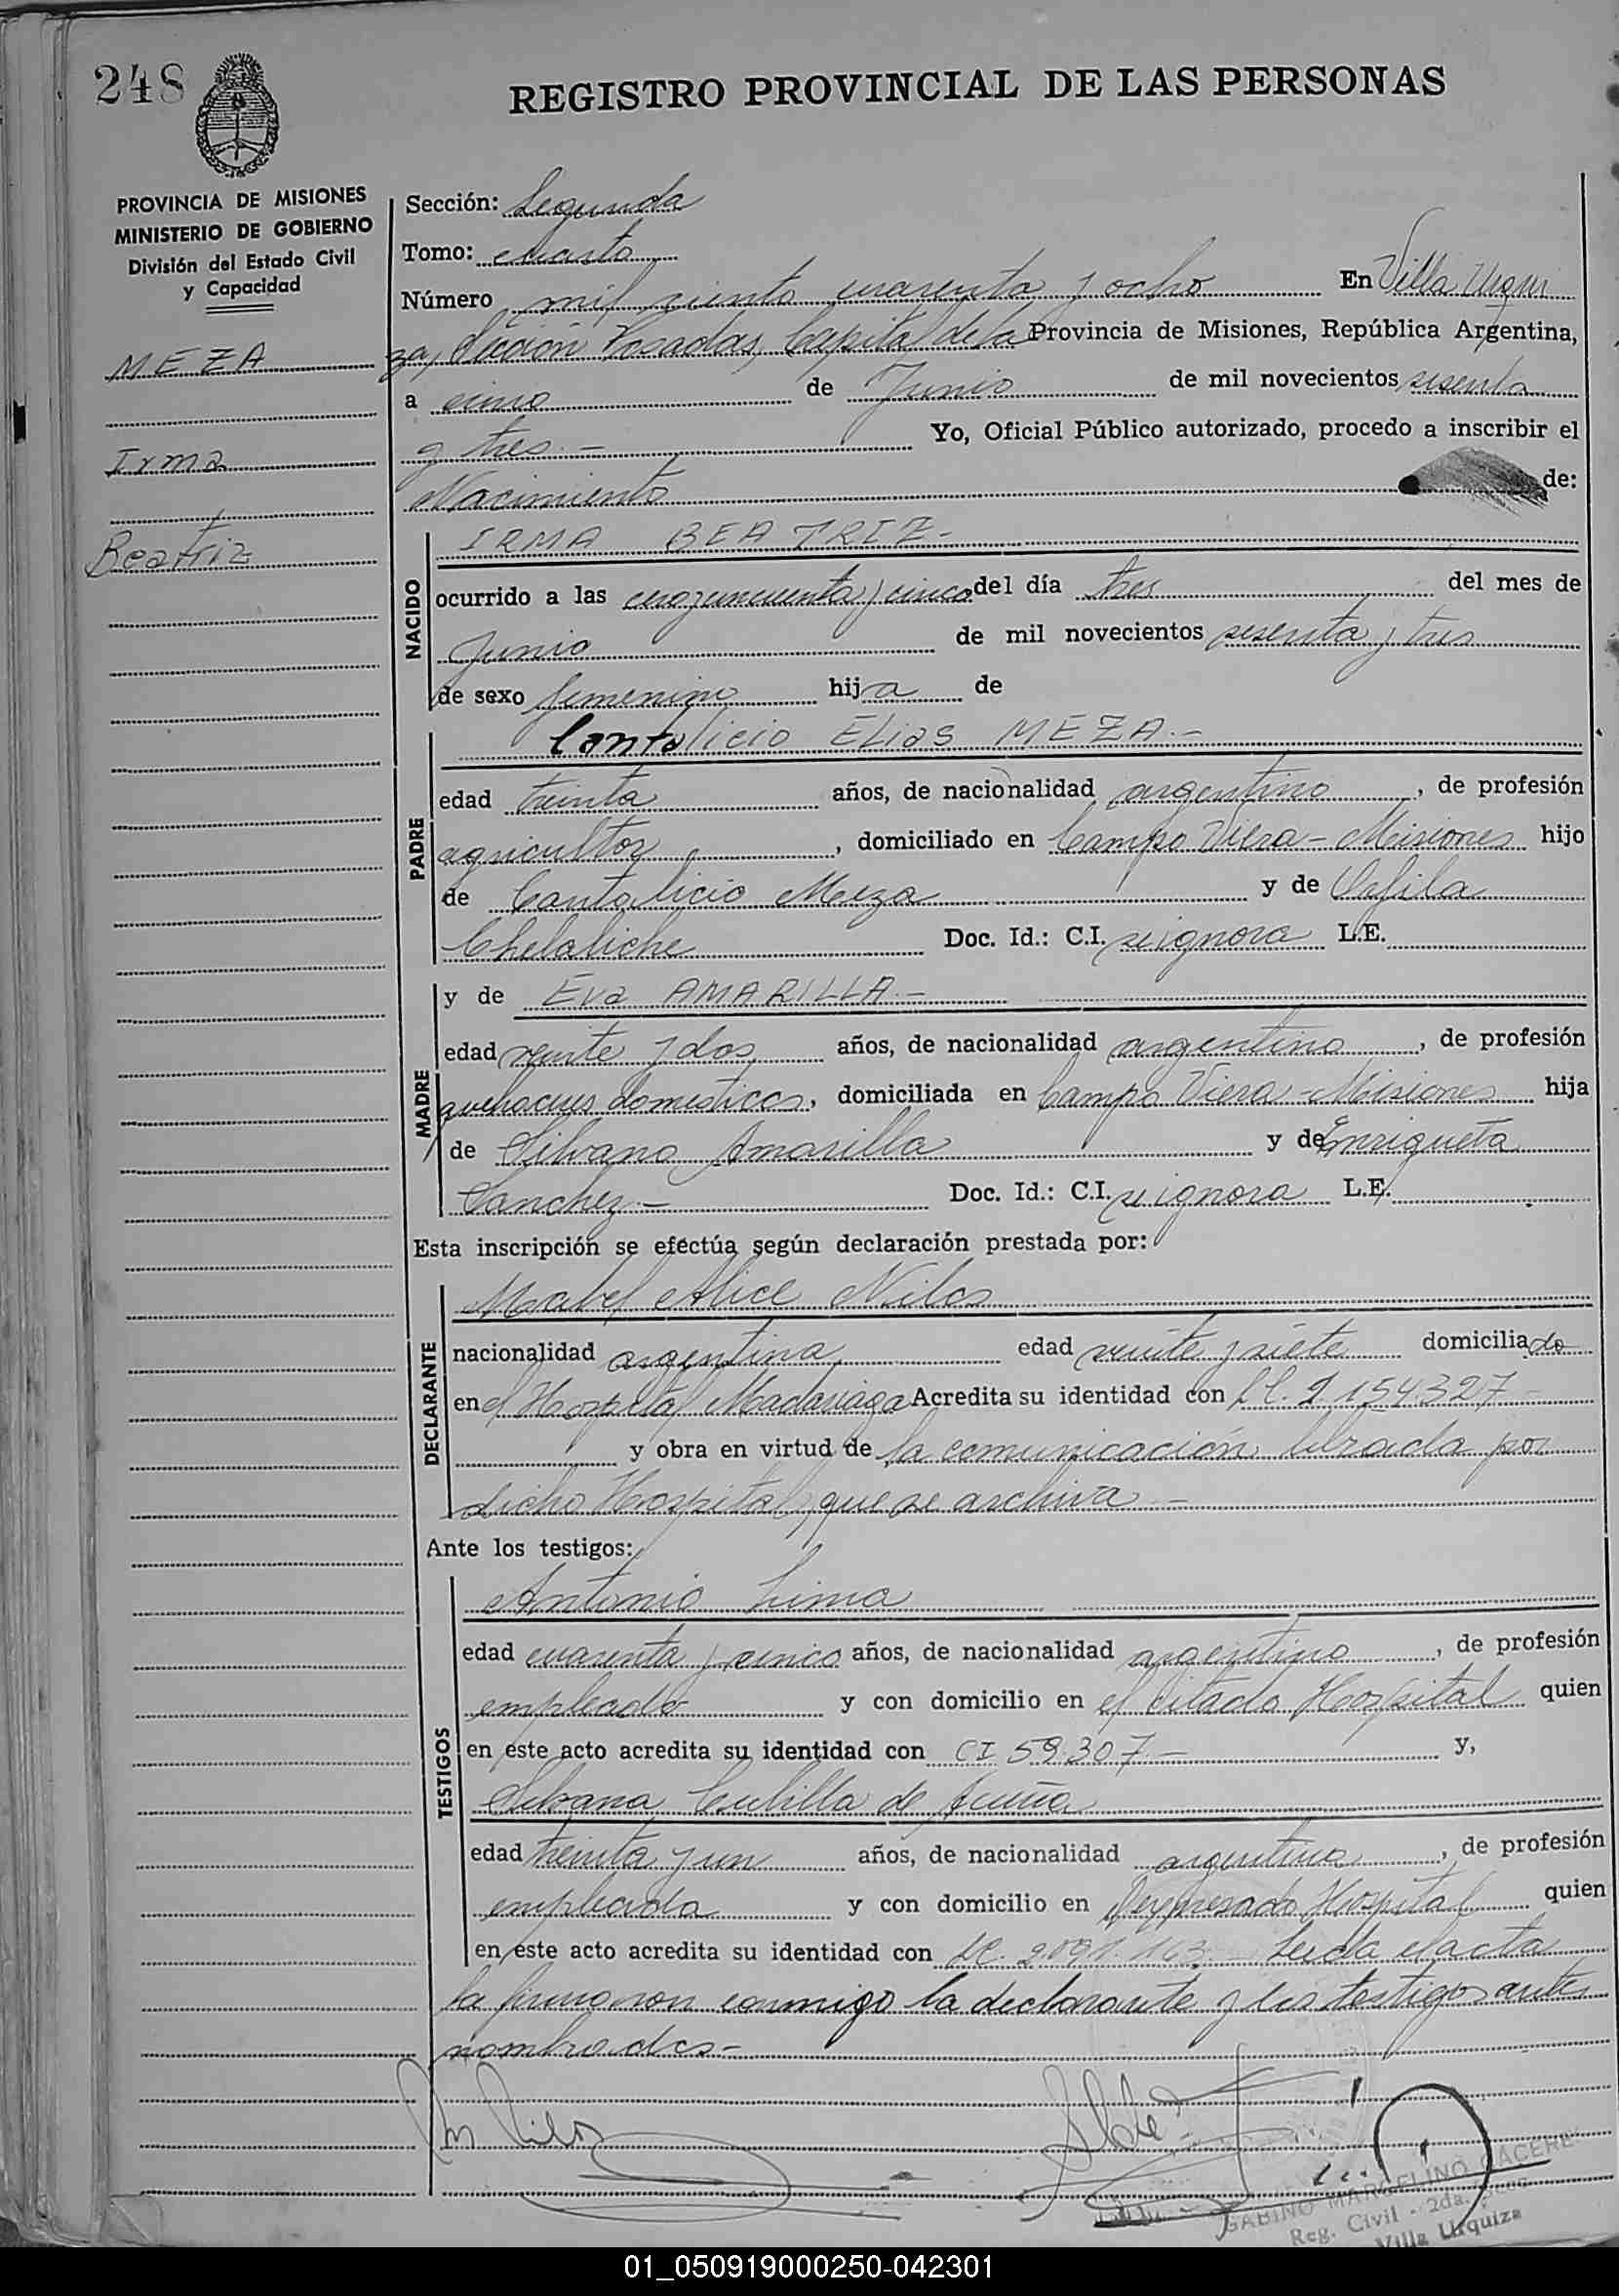 248
REGISTRO PROVINCIAL DE LAS PERSONAS
PROVINCIA DE MISIONES
MINISTERIO DE GOBIERNO
División del Estado Civil
y Capacidad
MEZA
Irma
Beatriz
Sección: Segunda
Tomo: cuarto
Número mil ciento cuarenta y ocho En Villa Urqui
za, Sección Posadas, Capital de la Provincia de Misiones, República Argentina,
a cinco de Junio de mil novecientos sesenta
y tres.- Yo, Oficial Público autorizado, procedo a inscribir el
Nacimiento de:
NACIDO
IRMA BEATRIZ-
ocurrido a las cero y cincuenta y cinco del día tres del mes de
Junio de mil novecientos sesenta y tres
de sexo femenino hija de
PADRE
Cantalicio Elias MEZA.-
edad treinta años, de nacionalidad argentino, de profesión
agricultor, domiciliado en Campo Viera - Misiones hijo
de Cantalicio Meza y de
Doc. Id.: C.I. se ignora L.E.
MADRE
y de Eva AMARILLA.-
edad veinte y dos años, de nacionalidad argentina, de profesión
quehaceres domesticos, domiciliada en Campo Viera - Misiones hija
de Silvano Amarilla y de Enriqueta
Sanchez.- Doc. Id.: C.I. se ignora L.E.
Esta inscripción se efectúa según declaración prestada por:
DECLARANTE
Mabel Alice
nacionalidad argentina edad veinte y siete domiciliado
en el Hospital Madariaga Acredita su identidad con LC. 2.154.327-
y obra en virtud de la comunicación librada por
dicho Hospital, que se archiva.-
Ante los testigos:
TESTIGOS
Antonio Lima
edad cuarenta y cinco años, de nacionalidad argentino, de profesión
empleado y con domicilio en el citado Hospital quien
en este acto acredita su identidad con CI 59.307.- y,
Silvana Cubilla de Acuña
edad treinta y un años, de nacionalidad argentina, de profesión
empleada y con domicilio en expresado Hospital quien
en este acto acredita su identidad con LC. Leida el acta
la firmaron conmigo la declarante y los testigos antes
nombrados.-
GABINO MARCELINO CACERE
Reg. Civil - 2da.
Villa Urquiza
01_050919000250-042301